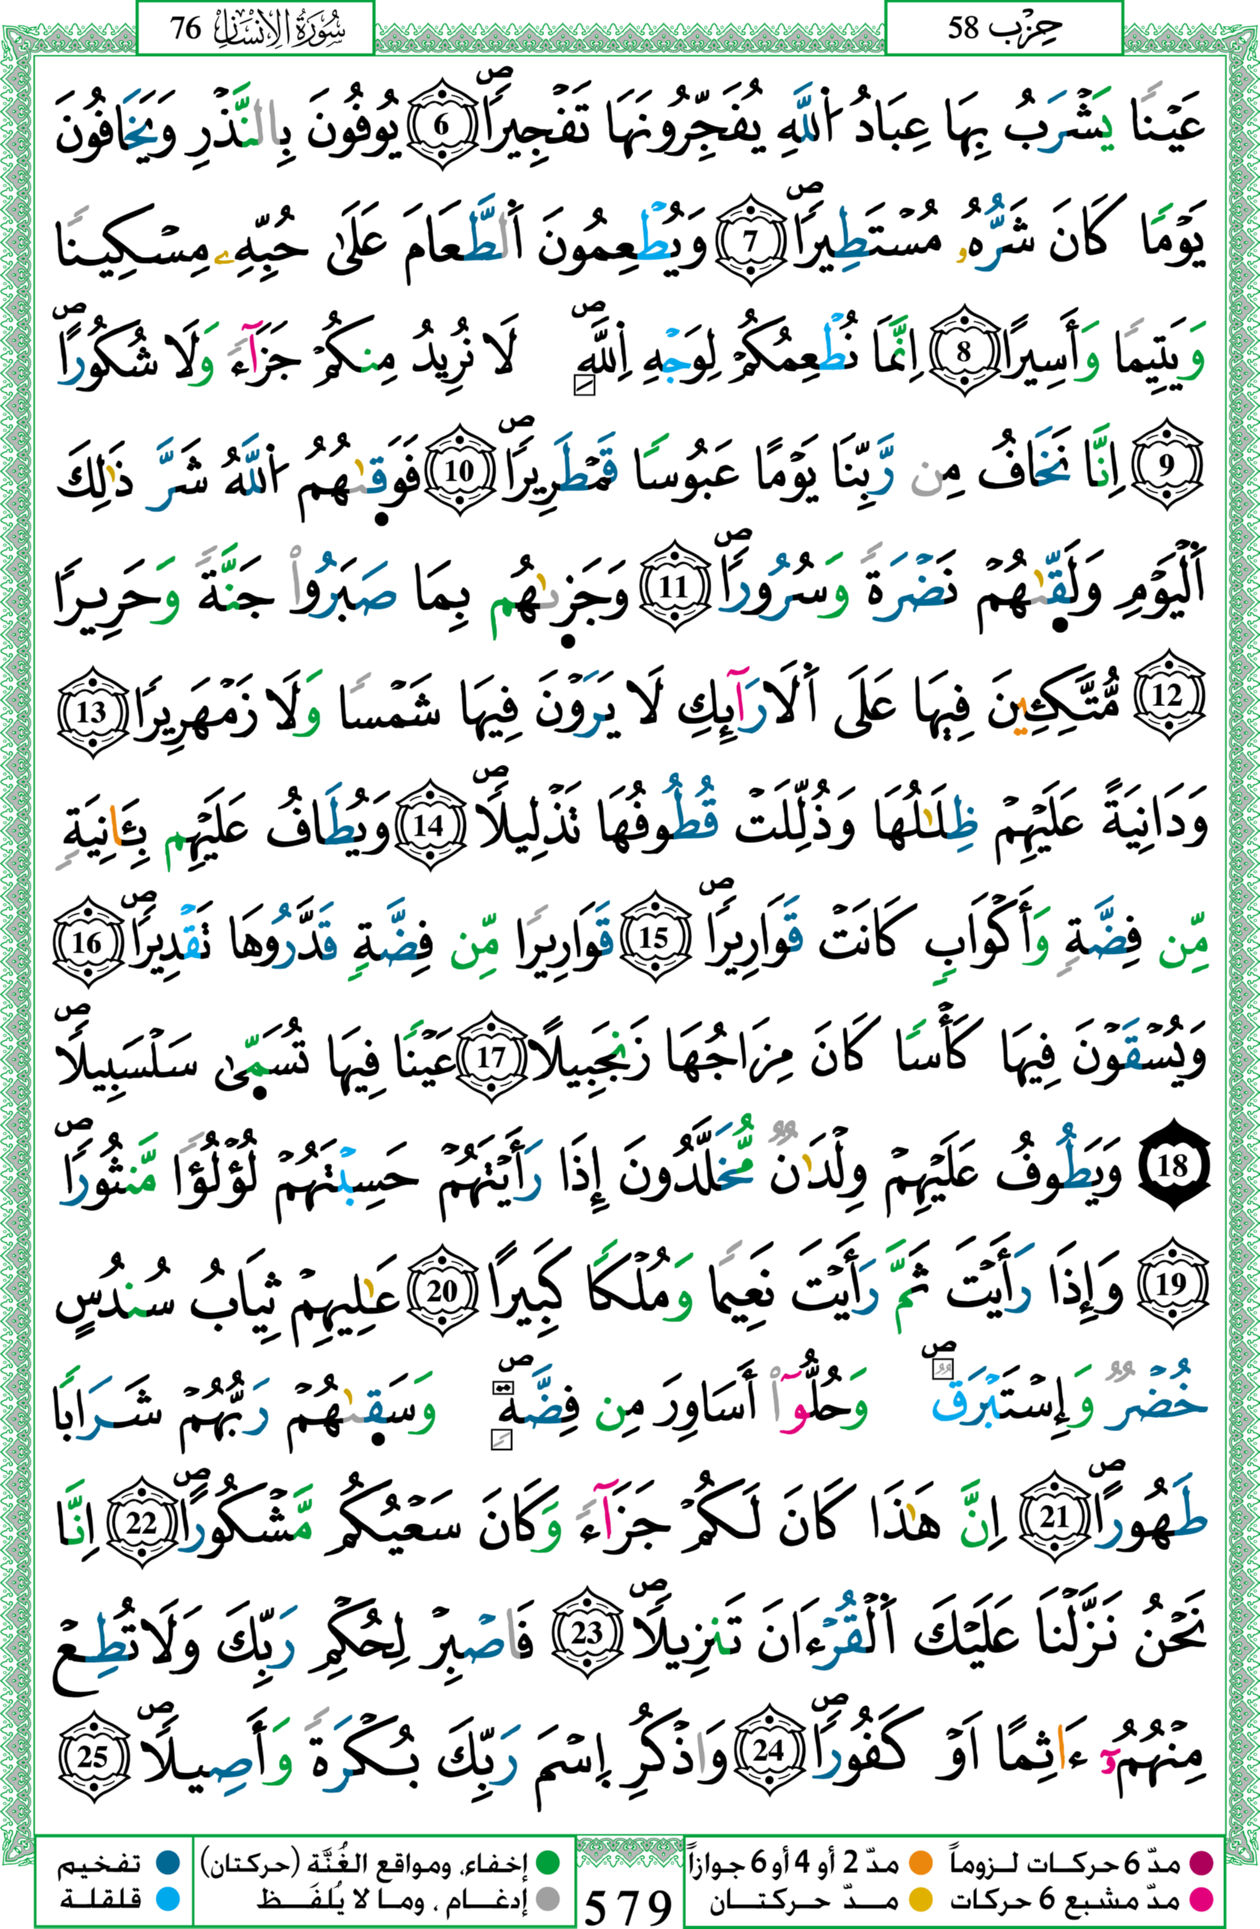 سُورَةُ الِانسَانِ 76
حِزْب 58
عَيْنًا يَشْرَبُ بِهَا عِبَادُ اُللَّهِ يُفَجِّرُونَهَا تَفْجِيرًاۖ 6 يُوفُونَ بِالنَّذْرِ وَيَخَافُونَ
يَوْمًا كَانَ شَرُّهُۥ مُسْتَطِيرًاۖ 7 وَيُطْعِمُونَ اَلطَّعَامَ عَلَىٰ حُبِّهِۦ مِسْكِينًا
وَيَتِيمًا وَأَسِيرًا 8 اِنَّمَا نُطْعِمُكُمْ لِوَجْهِ اِللَّهِۖ لَا نُرِيدُ مِنكُمْ جَزَآءً وَلَا شُكُورًاۖ
9 اِنَّا نَخَافُ مِن رَّبِّنَا يَوْمًا عَبُوسًا قَمْطَرِيرًاۖ 10 فَوَقِىٰهُمُ اُللَّهُ شَرَّ ذَٰلِكَ
اَلْيَوْمِ وَلَقِّىٰهُمْ نَضْرَةً وَسُرُورًاۖ 11 وَجَزِىٰهُم بِمَا صَبَرُواْ جَنَّةً وَحَرِيرًا
12 مُّتَّكِـِٔينَ فِيهَا عَلَى اَلَارَآئِكِ لَا يَرَوْنَ فِيهَا شَمْسًا وَلَا زَمْهَرِيرًا 13
وَدَانِيَةً عَلَيْهِمْ ظِلَٰلُهَا وَذُلِّلَتْ قُطُوفُهَا تَذْلِيلًاۖ 14 وَيُطَافُ عَلَيْهِم بِـَٔانِيَةٍ
مِّن فِضَّةٍ وَأَكْوَابٍ كَانَتْ قَوَارِيرًاۖ 15 قَوَارِيرًا مِّن فِضَّةٍ قَدَّرُوهَا تَقْدِيرًاۖ 16
وَيُسْقَوْنَ فِيهَا كَأْسًا كَانَ مِزَاجُهَا زَنجَبِيلًا 17 عَيْنًا فِيهَا تُسَمِّىٰ سَلْسَبِيلًاۖ
18 وَيَطُوفُ عَلَيْهِمْ وِلْدَٰنٌ مُّخَلَّدُونَ إِذَا رَأَيْتَهُمْ حَسِبْتَهُمْ لُؤْلُؤًا مَّنثُورًاۖ
19 وَإِذَا رَأَيْتَ ثَمَّ رَأَيْتَ نَعِيمًا وَمُلْكًا كَبِيرًا 20 عَٰلِيهِمْ ثِيَابُ سُندُسٍ
خُضْرٌ وَإِسْتَبْرَقٌۖ وَحُلُّوٓاْ أَسَاوِرَ مِن فِضَّةٍۖ وَسَقِىٰهُمْ رَبُّهُمْ شَرَابًا
طَهُورًاۖ 21 اِنَّ هَٰذَا كَانَ لَكُمْ جَزَآءً وَكَانَ سَعْيُكُم مَّشْكُورًاۖ 22 اِنَّا
نَحْنُ نَزَّلْنَا عَلَيْكَ اَلْقُرْءَانَ تَنزِيلًاۖ 23 فَاصْبِرْ لِحُكْمِ رَبِّكَ وَلَا تُطِعْ
مِنْهُمُۥٓ ءَاثِمًا اَوْ كَفُورًاۖ 24 وَاذْكُرِ اِسْمَ رَبِّكَ بُكْرَةً وَأَصِيلًاۖ 25
مدّ 6 حركات لـزوماً
مدّ 2 أو 4 أو 6 جوازاً
مدّ مشبع 6 حركات
مـدّ حـركتـان
579
إخفاء، ومواقع الغُنَّة (حركتان)
إدغـام ، ومـا لا يُلفَـظ
تفخيم
قلقلة